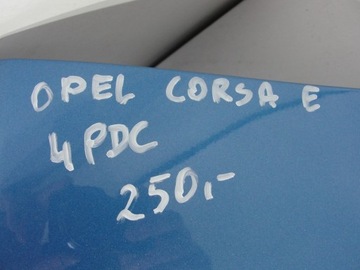 OPEL CORSA E
4 PDC
250,-